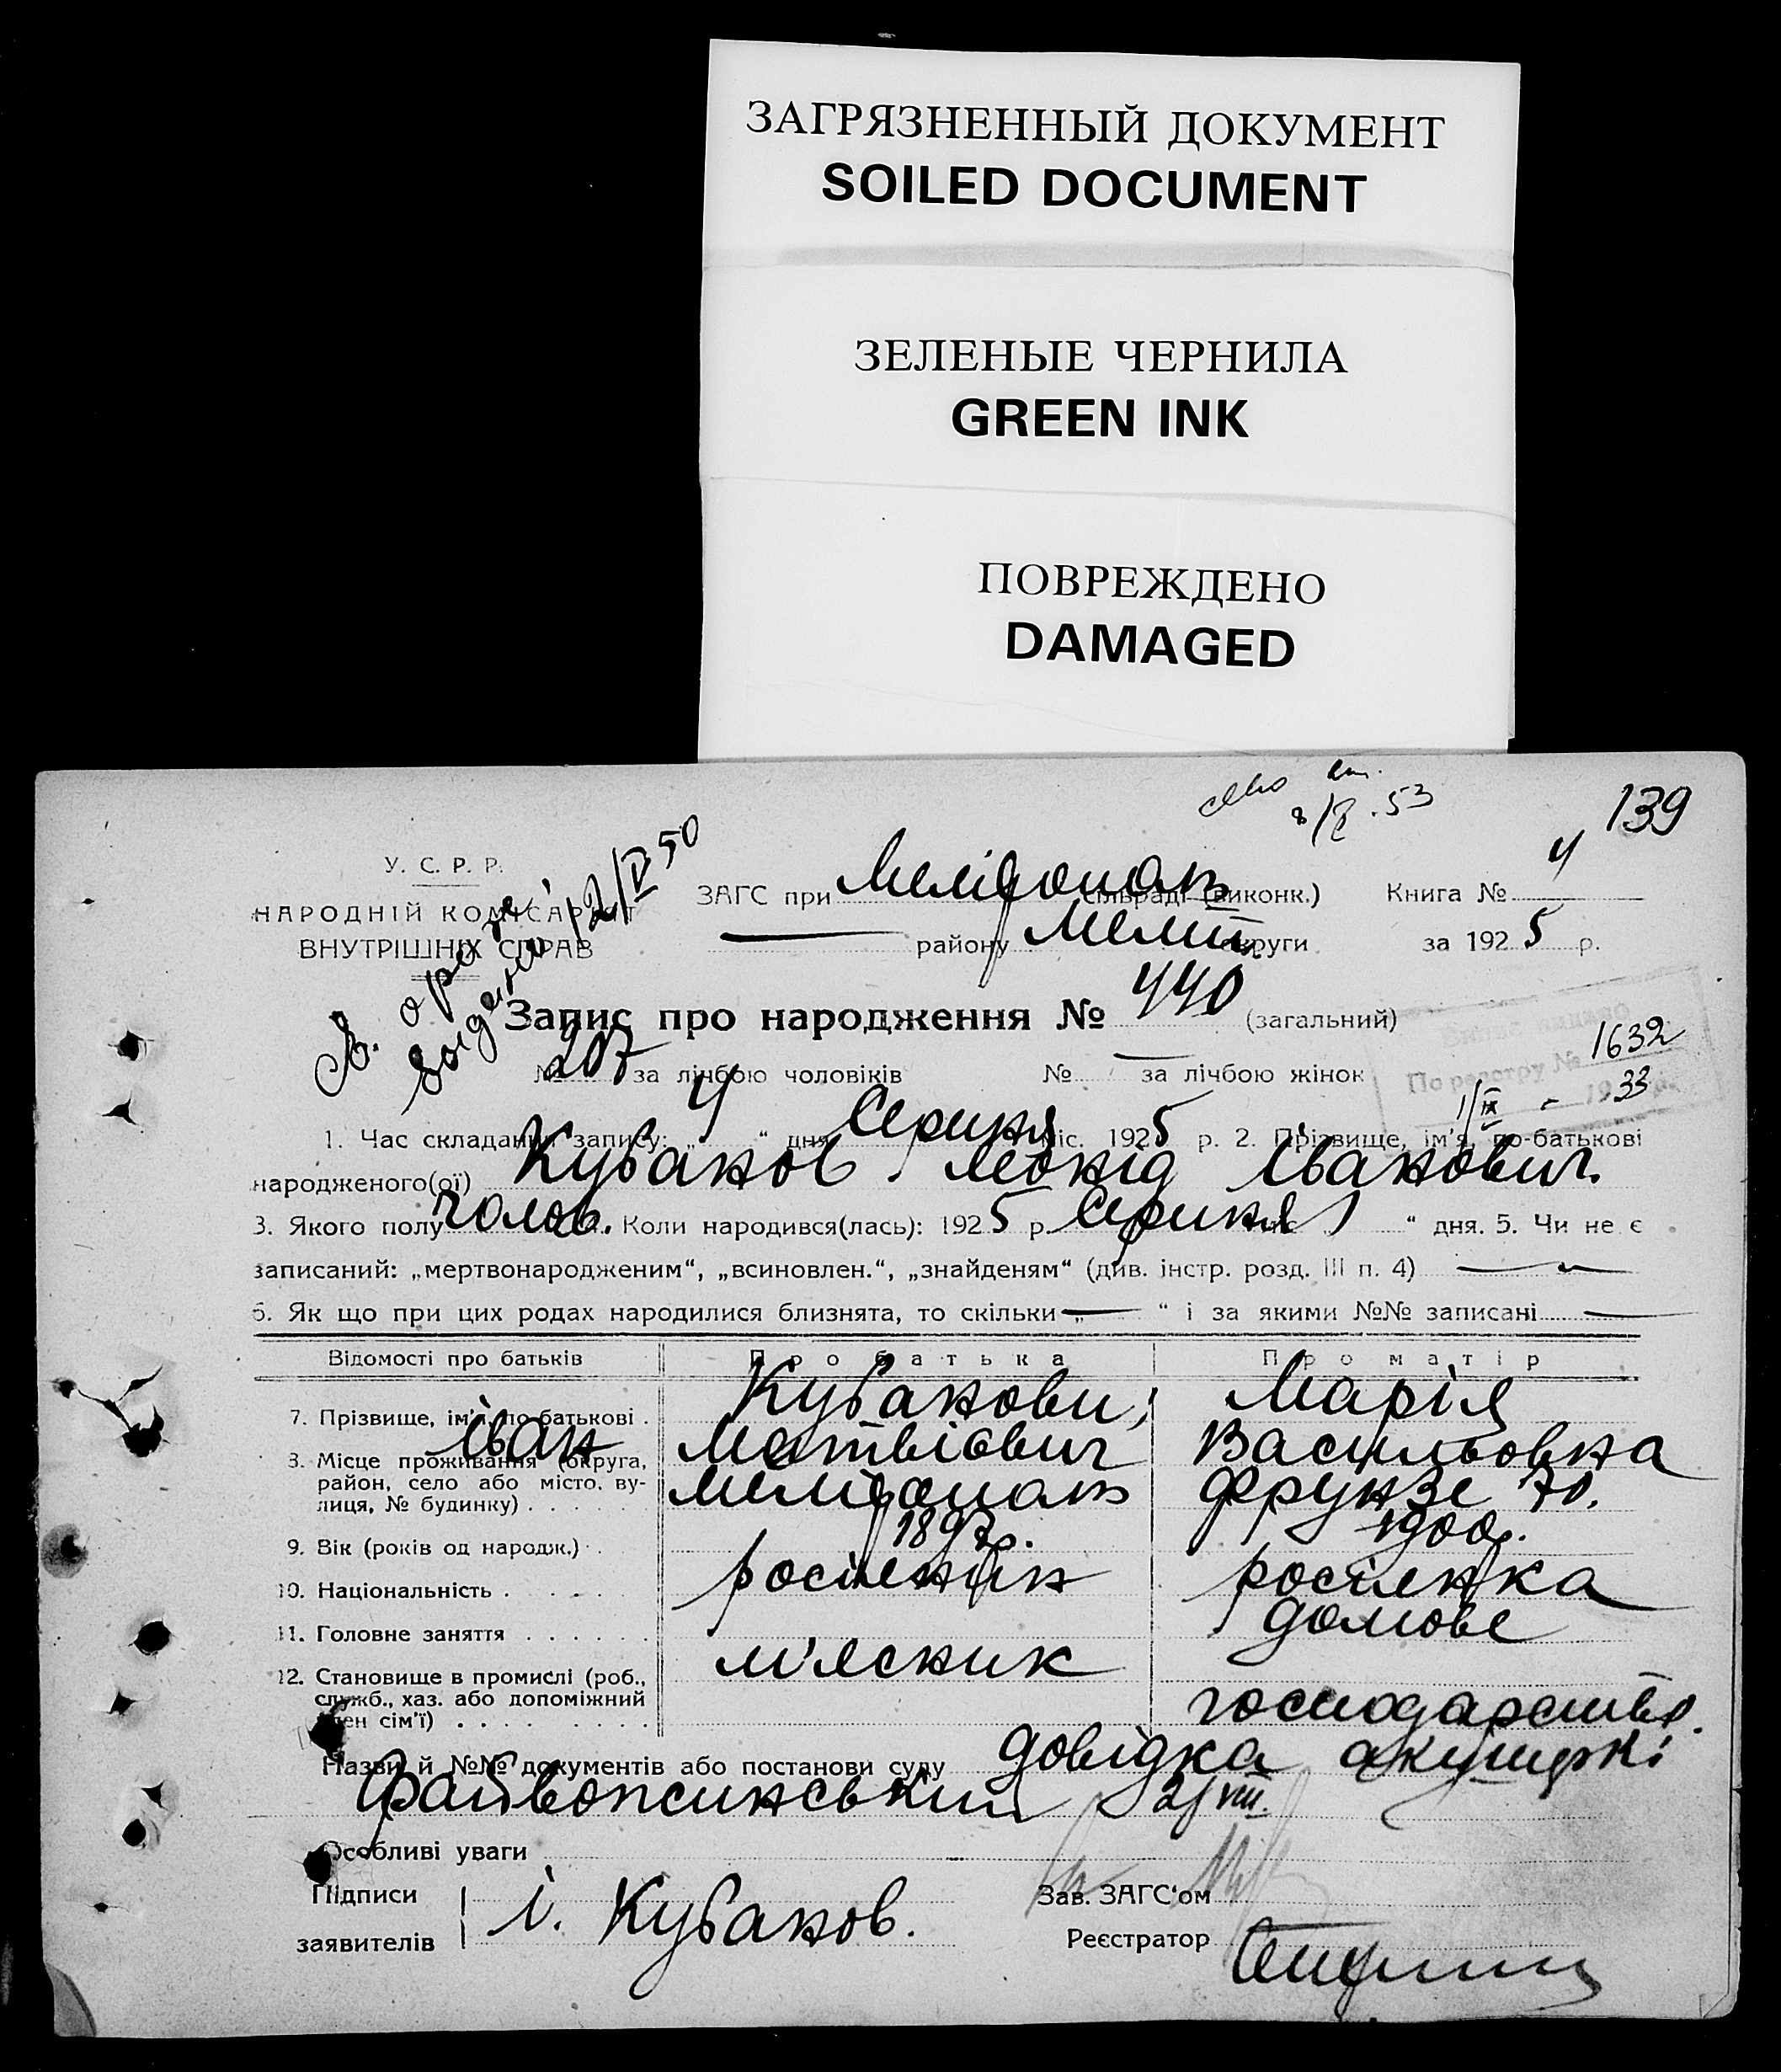 ЗАГРЯЗНЕННЫЙ ДОКУМЕНТ
SOILED DOCUMENT
ЗЕЛЕНЫЕ ЧЕРНИЛА
GREEN INK
ПОВРЕЖДЕНО
DAMAGED
139
У. С. Р. Р.
НАРОДНІЙ КОМІСАРІЯТ
ВНУТРІШНІХ СПРАВ
12/V 50
53
ЗАГС при Меліфополь сільраді (виконк.) Книга № 4
— району Мелит. округи за 1925 р.
Запис про народження № 440 (загальний)
№ 207 за лічбою чоловіків № — за лічбою жінок
По реєстру № 1632
1/IX - 1933
1. Час складання запису: „4“ дня Серпня міс. 1925 р. 2. Прізвище, ім'я, по-батькові
народженого(ої) Кубанов Леонід Іванович.
3. Якого полу Чолов. Коли народився(лась): 1925 р. Серпня міс 1 “ дня. 5. Чи не є
записаний: „мертвонародженим“, „всиновлен.“, „знайденям“ (див. інстр. розд. III п. 4) —
6. Як що при цих родах народилися близнята, то скільки „— “ і за якими №№ записані —
Відомості про батьків Про батька Про матір
7. Прізвище, ім'я, по-батькові . Кубанови; Марія
Іван Матвіович Васильовна
8. Місце проживання (округа,
район, село або місто, ву-
лиця, № будинку) . . . . . Меліфополь Фрунзе 70.
9. Вік (років од народж.) . . 1897р. 1900р.
10. Національність . . . . . росіянин росіянка
11. Головне заняття . . . . . . м'ясник домове
12. Становище в промислі (роб.,
служб., хаз. або допоміжний
член сім'ї) . . . . . . . . господарство.
Назви й №№ документів або постанови суду довідка акушеркі
Файвопсинський 2/VIII.
Особливі уваги
Підписи
заявителів І. Кубанов.
Зав. ЗАГС'ом
Реєстратор